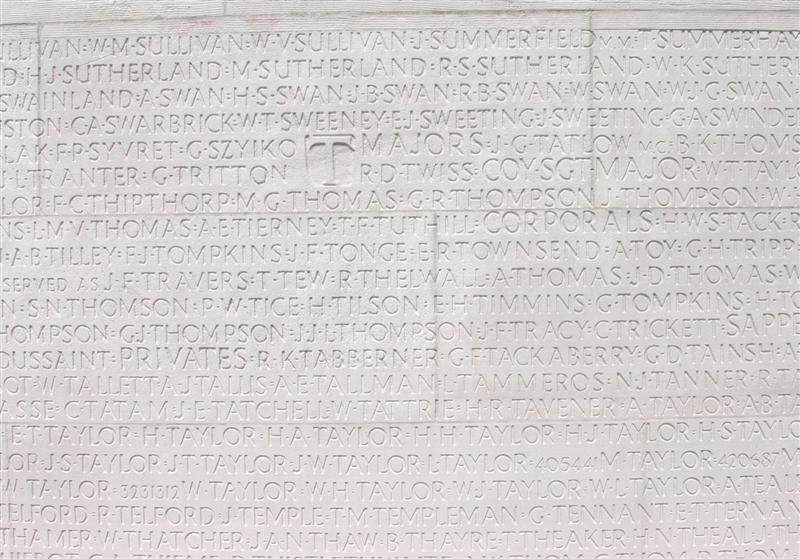 SULLIVAN·W·M·SULLIVAN·W·V·SULLIVAN·J·SUMMERFIELD M.M.·T·SUMMERHAY
D·H·J·SUTHERLAND·M·SUTHERLAND·R·S·SUTHERLAND·W·K·SUTHERL
SWAINLAND·A·SWAN·H·S·SWAN·J·B·SWAN·R·B·SWAN·W·SWAN·W·J·G·SWAN
STON·C·A·SWARBRICK·W·T·SWEENEY·E·J·SWEETING·J·SWEETING·G·A·SWINDE
LAK·F·P·SYVRET·G·SZYIKO T MAJORS·J·G·TATLOW M.C.·B·K·THOMS
J·L·TRANTER·G·TRITTON R·D·TWISS·COY·SGT MAJOR·W·T·TAYLO
LOR·F·C·THIPTHORP·M·G·THOMAS·G·R·THOMPSON·J·THOMPSON·W·
NS·L·M·V·THOMAS·A·E·TIERNEY·T·F·TUTHILL·CORPORALS·H·W·STACK·R
A·B·TILLEY·F·J·TOMPKINS·J·F·TONGE·E·P·TOWNSEND·A·TOY·G·H·TRIPP
SERVED AS J·F·TRAVERS·T·TEW·R·THELWALL·A·THOMAS·J·D·THOMAS·W
N·S·N·THOMSON·P·W·TICE·H·TILSON·E·H·TIMMINS·G·TOMPKINS·H·TO
HOMPSON·G·J·THOMPSON·J·J·L·THOMPSON·J·F·TRACY·C·TRICKETT·SAPPE
OUSSAINT·PRIVATES·R·K·TABBERNER·G·F·TACKABERRY·G·D·TAINSH·A
OT·W·TALLETT·A·J·TALLIS·A·E·TALLMAN·L·TAMMEROS·N·J·TANNER·R·T
ASSE·C·TATAM·J·E·TATCHELL·W·TATTRIE·H·R·TAVENER·A·TAYLOR·A·B·TA
E·T·TAYLOR·H·TAYLOR·H·A·TAYLOR·H·H·TAYLOR·H·J·TAYLOR·H·S·TAYLO
LOR·J·S·TAYLOR·J·T·TAYLOR·J·W·TAYLOR·L·TAYLOR·405441 M·TAYLOR·420687 M
W·TAYLOR·3231312 W·TAYLOR·W·H·TAYLOR·W·J·TAYLOR·W·L·TAYLOR·A·TEAL
TELFORD·R·TELFORD·J·TEMPLE·T·M·TEMPLEMAN·G·TENNANT·E·T·TERNAN
THAMER·W·THATCHER·J·A·N·THAW·B·THAYRET·THEAKER·H·N·THEAL·J·TH